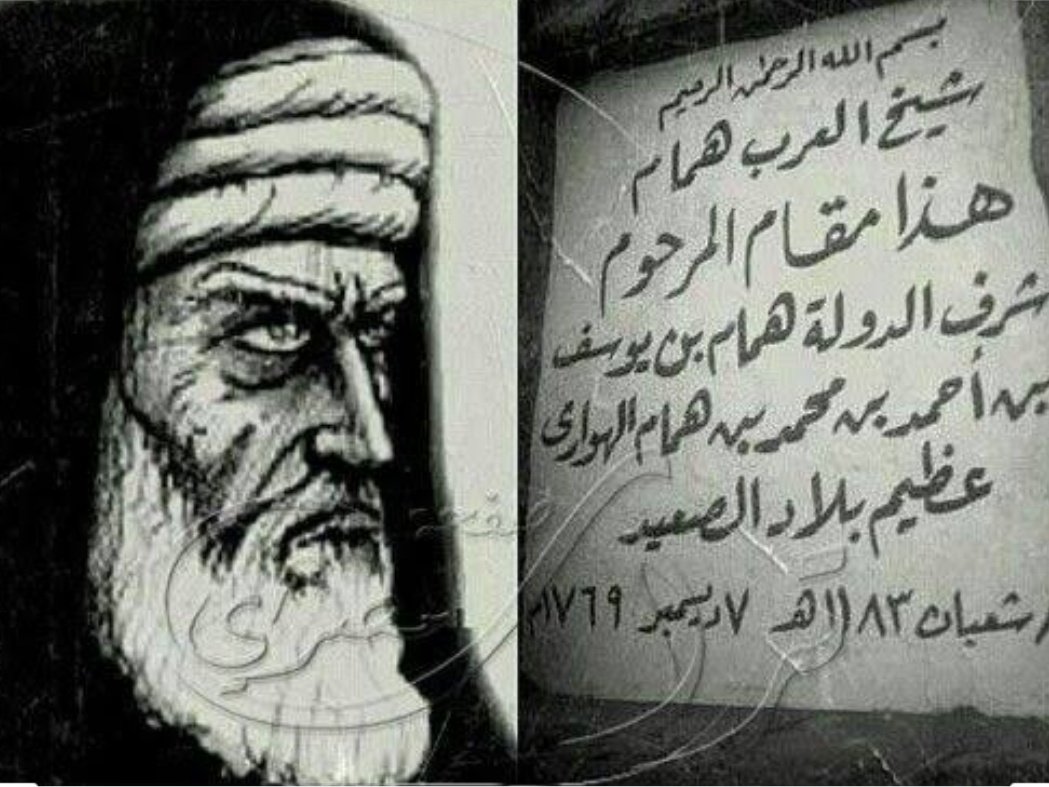 بسم الله الرحمن الرحيم
شيخ العرب همام
هذا مقام المرحوم
شرف الدولة همام بن يوسف
بن أحمد بن محمد بن همام الهوارى
عظيم بلاد الصعيد
شعبان ١١٨٣هـ ٧ ديسمبر ١٧٦٩م